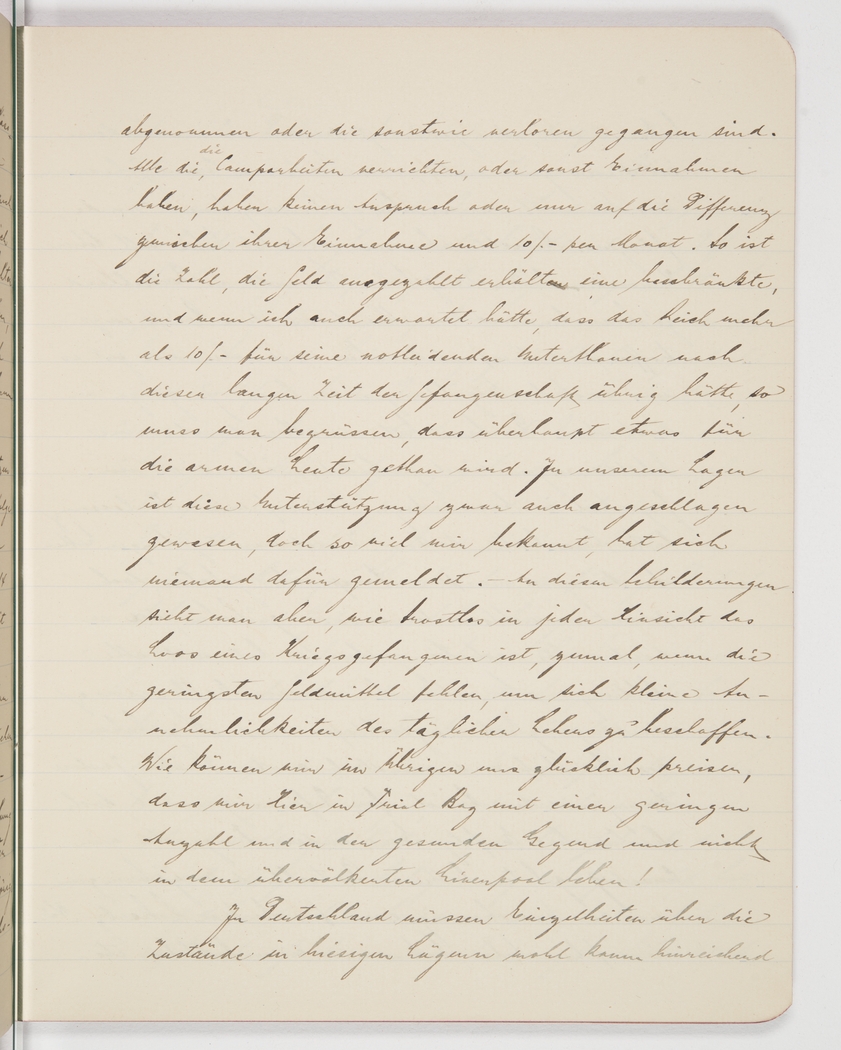 abgenommen oder die sonstwie verloren gegangen sind.
die
Alle die, Camparbeiten verrichten, oder sonst Einnahmen
haben, haben keinen Anspruch oder nur auf die Differenz
zwischen ihrer Einnahme und 10/- per Monat. So ist
die Zahl, die Geld ausgezahlt erhält eine beschränkte,
und wenn ich auch erwartet hätte, dass das Reich mehr
als 10/- für seine notleidenden Unterthanen nach
dieser langen Zeit der Gefangenschaft übrig hätte, so
muss man begrüssen, dass überhaupt etwas für
die armen Leute gethan wird. In unserem Lager
ist diese Unterstützung zwar auch angeschlagen
gewesen, doch so viel mir bekannt, hat sich
niemand dafür gemeldet. – An diesen Schilderungen
sieht man aber, wie trostlos in jeder Hinsicht das
Loos eines Kriegsgefangenen ist, zumal, wenn die
geringsten Geldmittel fehlen, um sich kleine An-
nehmlichkeiten des täglichen Lebens zu beschaffen.
Wie können wir im Übrigen uns glücklich preisen,
dass wir hier in Trial Bay mit einer geringen
Anzahl und in der gesunden Gegend und nicht
in dem übervölkerten Liverpool leben!
In Deutschland müssen Einzelheiten über die
Zustände in hiesigen Lägern wohl kaum hinreichend